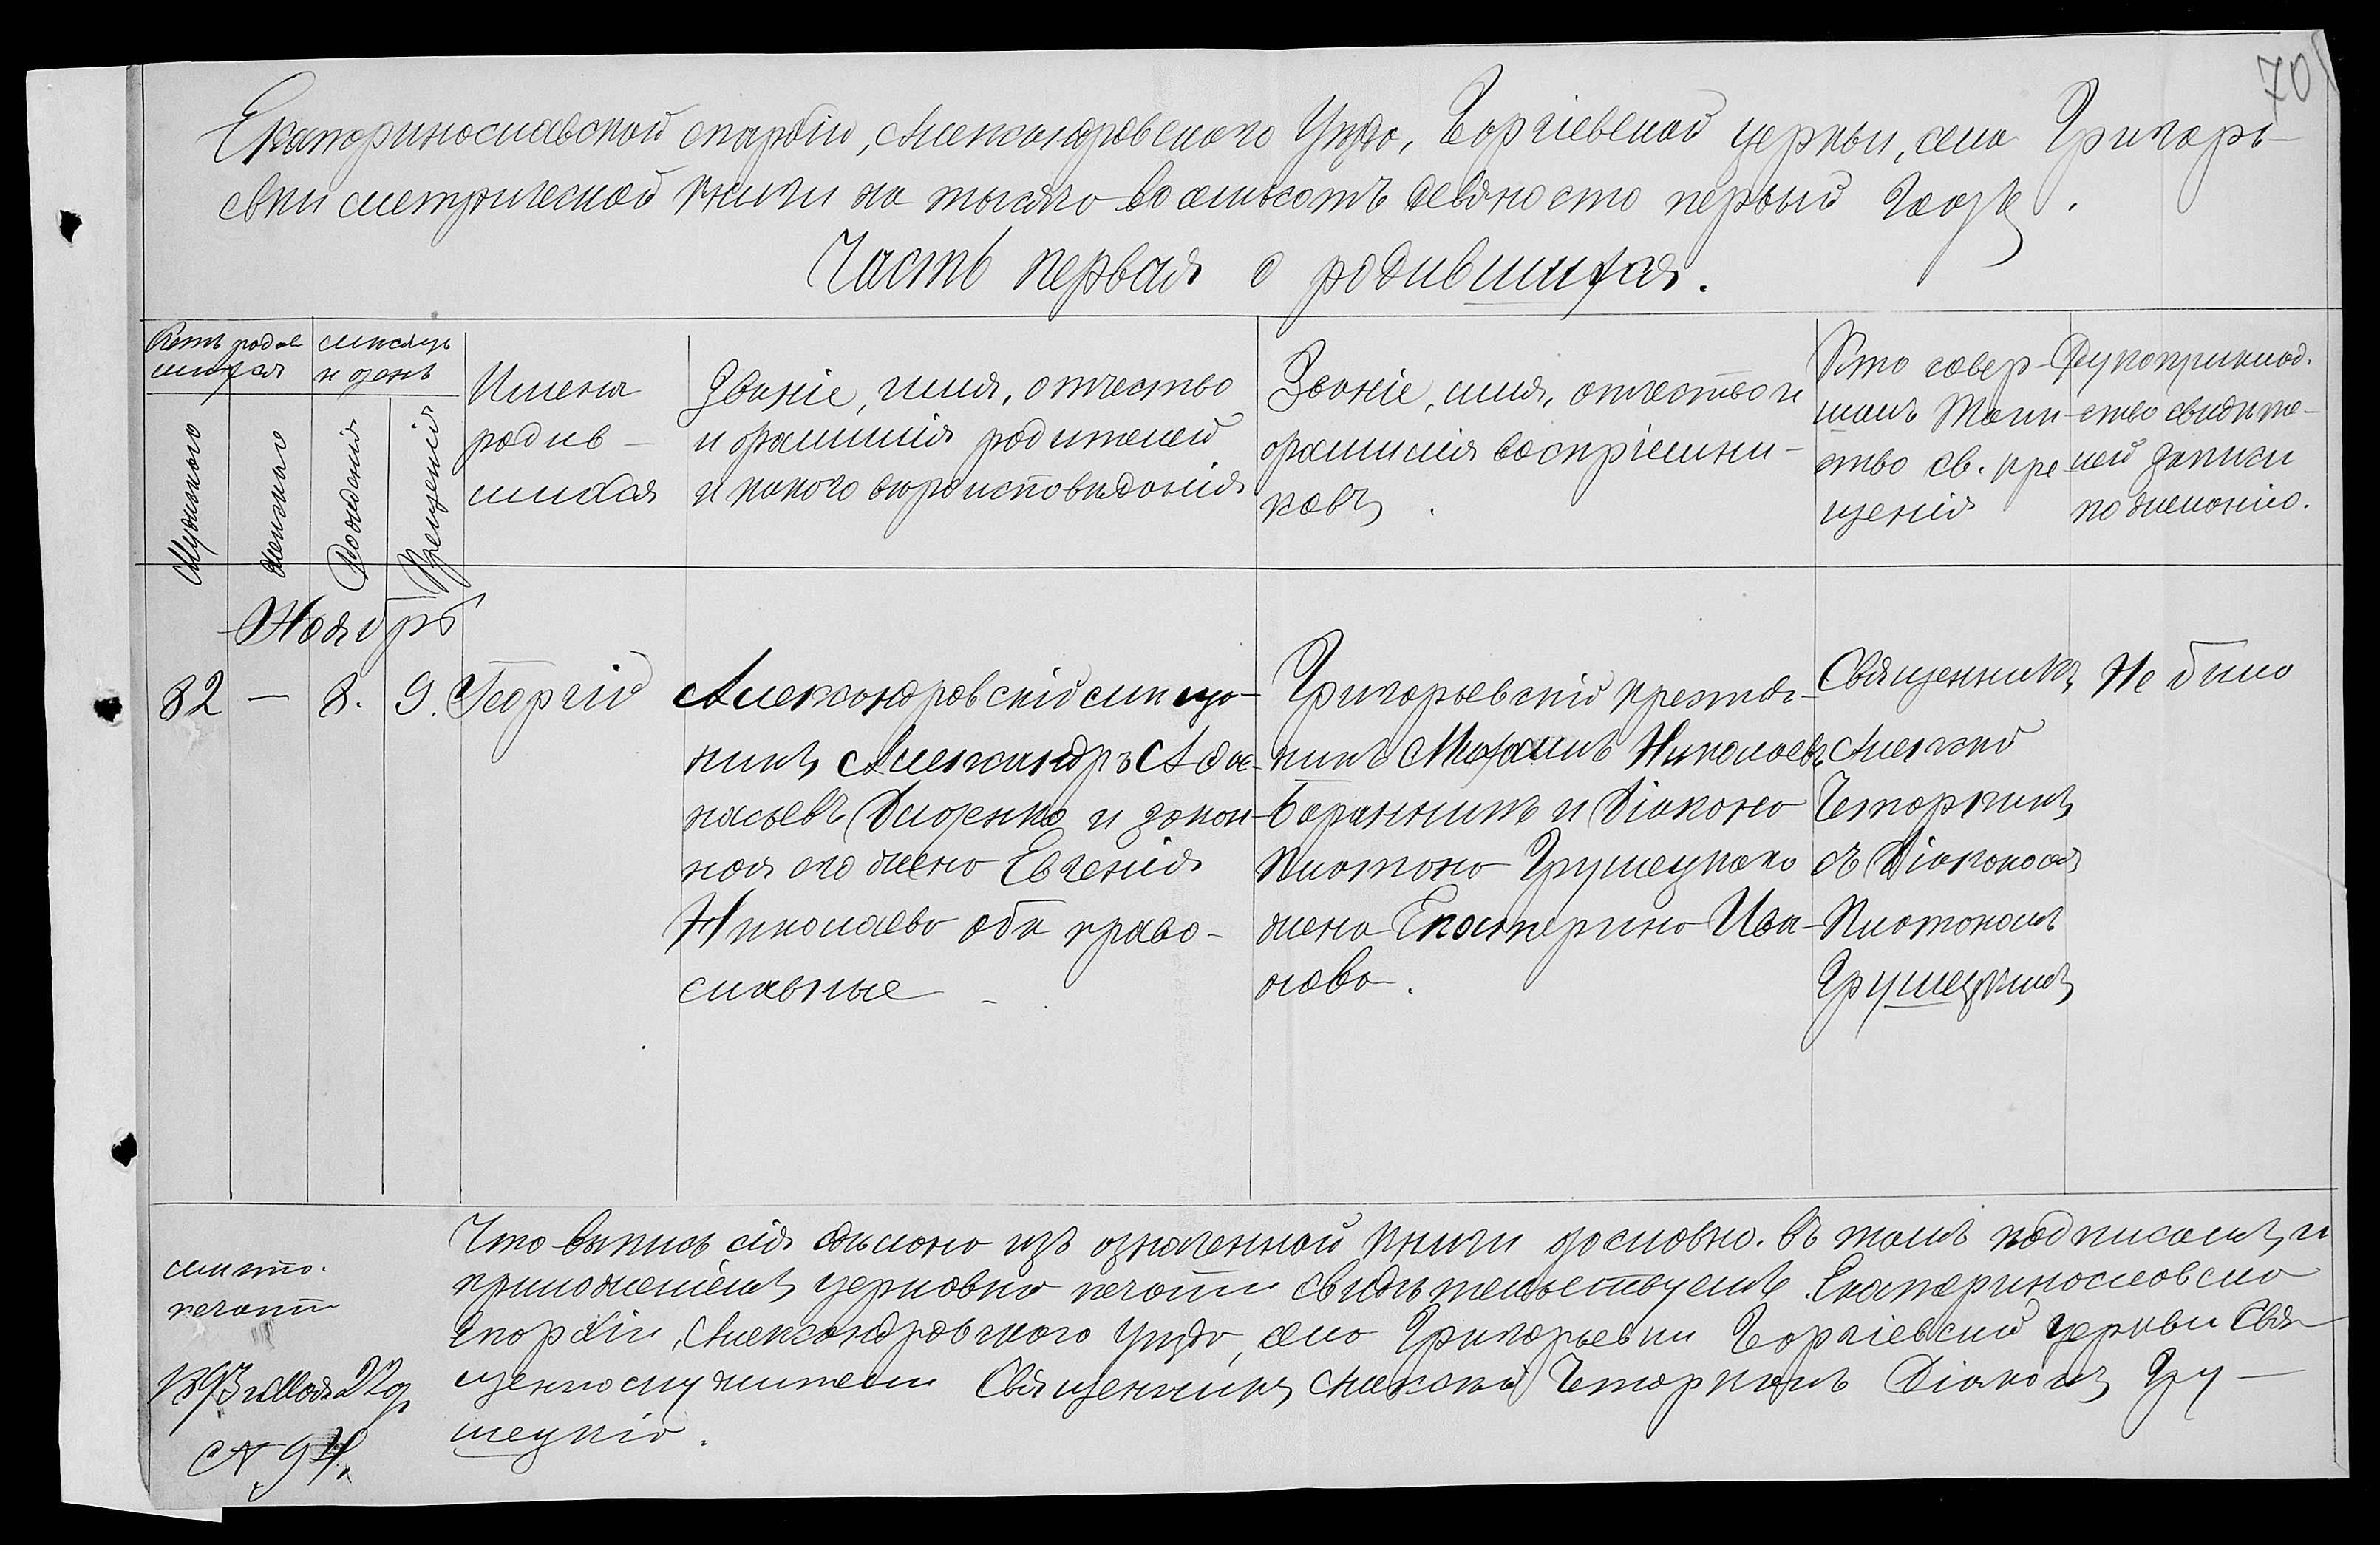 70
Екатеринославской епархіи, Александровскаго Уѣзда, Георгіевской церкви, села Григорь-
евки метрической книги на тысяча восемьсотъ девяносто первый годъ.
Часть первая о родившихся.
Счетъ родив
шихся
мѣсяцъ
и день
Мужеского
Женскаго
Рожденія
Крещенія
Имена
родив-
шихся
Званіе, имя, отчество
и фамилія родителей
и какого вѣроисповѣданія
Званіе, имя, отчество и
фамилія воспріемни-
ковъ.
Кто совер-
шалъ Таин-
ство св. кре
щенія
Рукоприклад.
ство свидѣте-
лей записи
по желанію.
Ноябрь
82 — 8. 9. Георгій
Александровскій мѣща-
нинъ Александръ Афа-
насьевъ и закон-
ная его жена Евгенія
Николаева оба право-
славные
Григорьевскій крестья-
нинъ Михаилъ Николаевъ
Баранникъ и Діакона
Платона Грушецкаго
жена Екатерина Ива-
нова.
Священникъ
Алексѣй
Четыркинъ
съ Діакономъ
Платономъ
Грушецкимъ
Не было
мѣсто.
печати
1893 г. Мая 22 д.
№ 94.
Что выпись сія сдѣлана изъ означенной книги дословно. въ томъ подписомъ и
приложеніемъ церковно печати свидѣтельствуемъ. Екатеринославско
Епархіи, Александровскаго Уѣзда, села Григорьевки Георгіевской церкви Свя-
щеннослужители Священникъ Алексѣй Четыркинъ Діаконъ Гру-
шецкій.